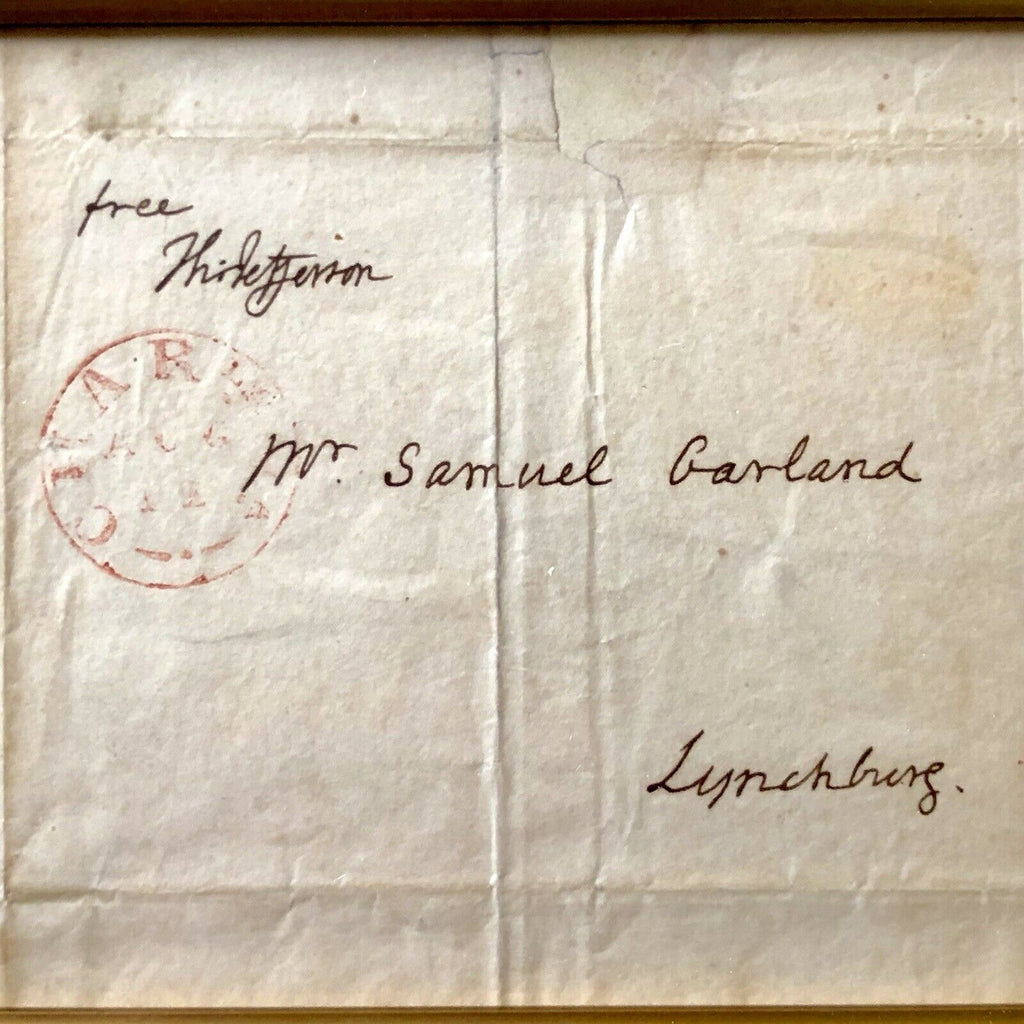 free
Th:Jefferson
CHARL
AUG
Mr. Samuel Garland
Lynchburg.